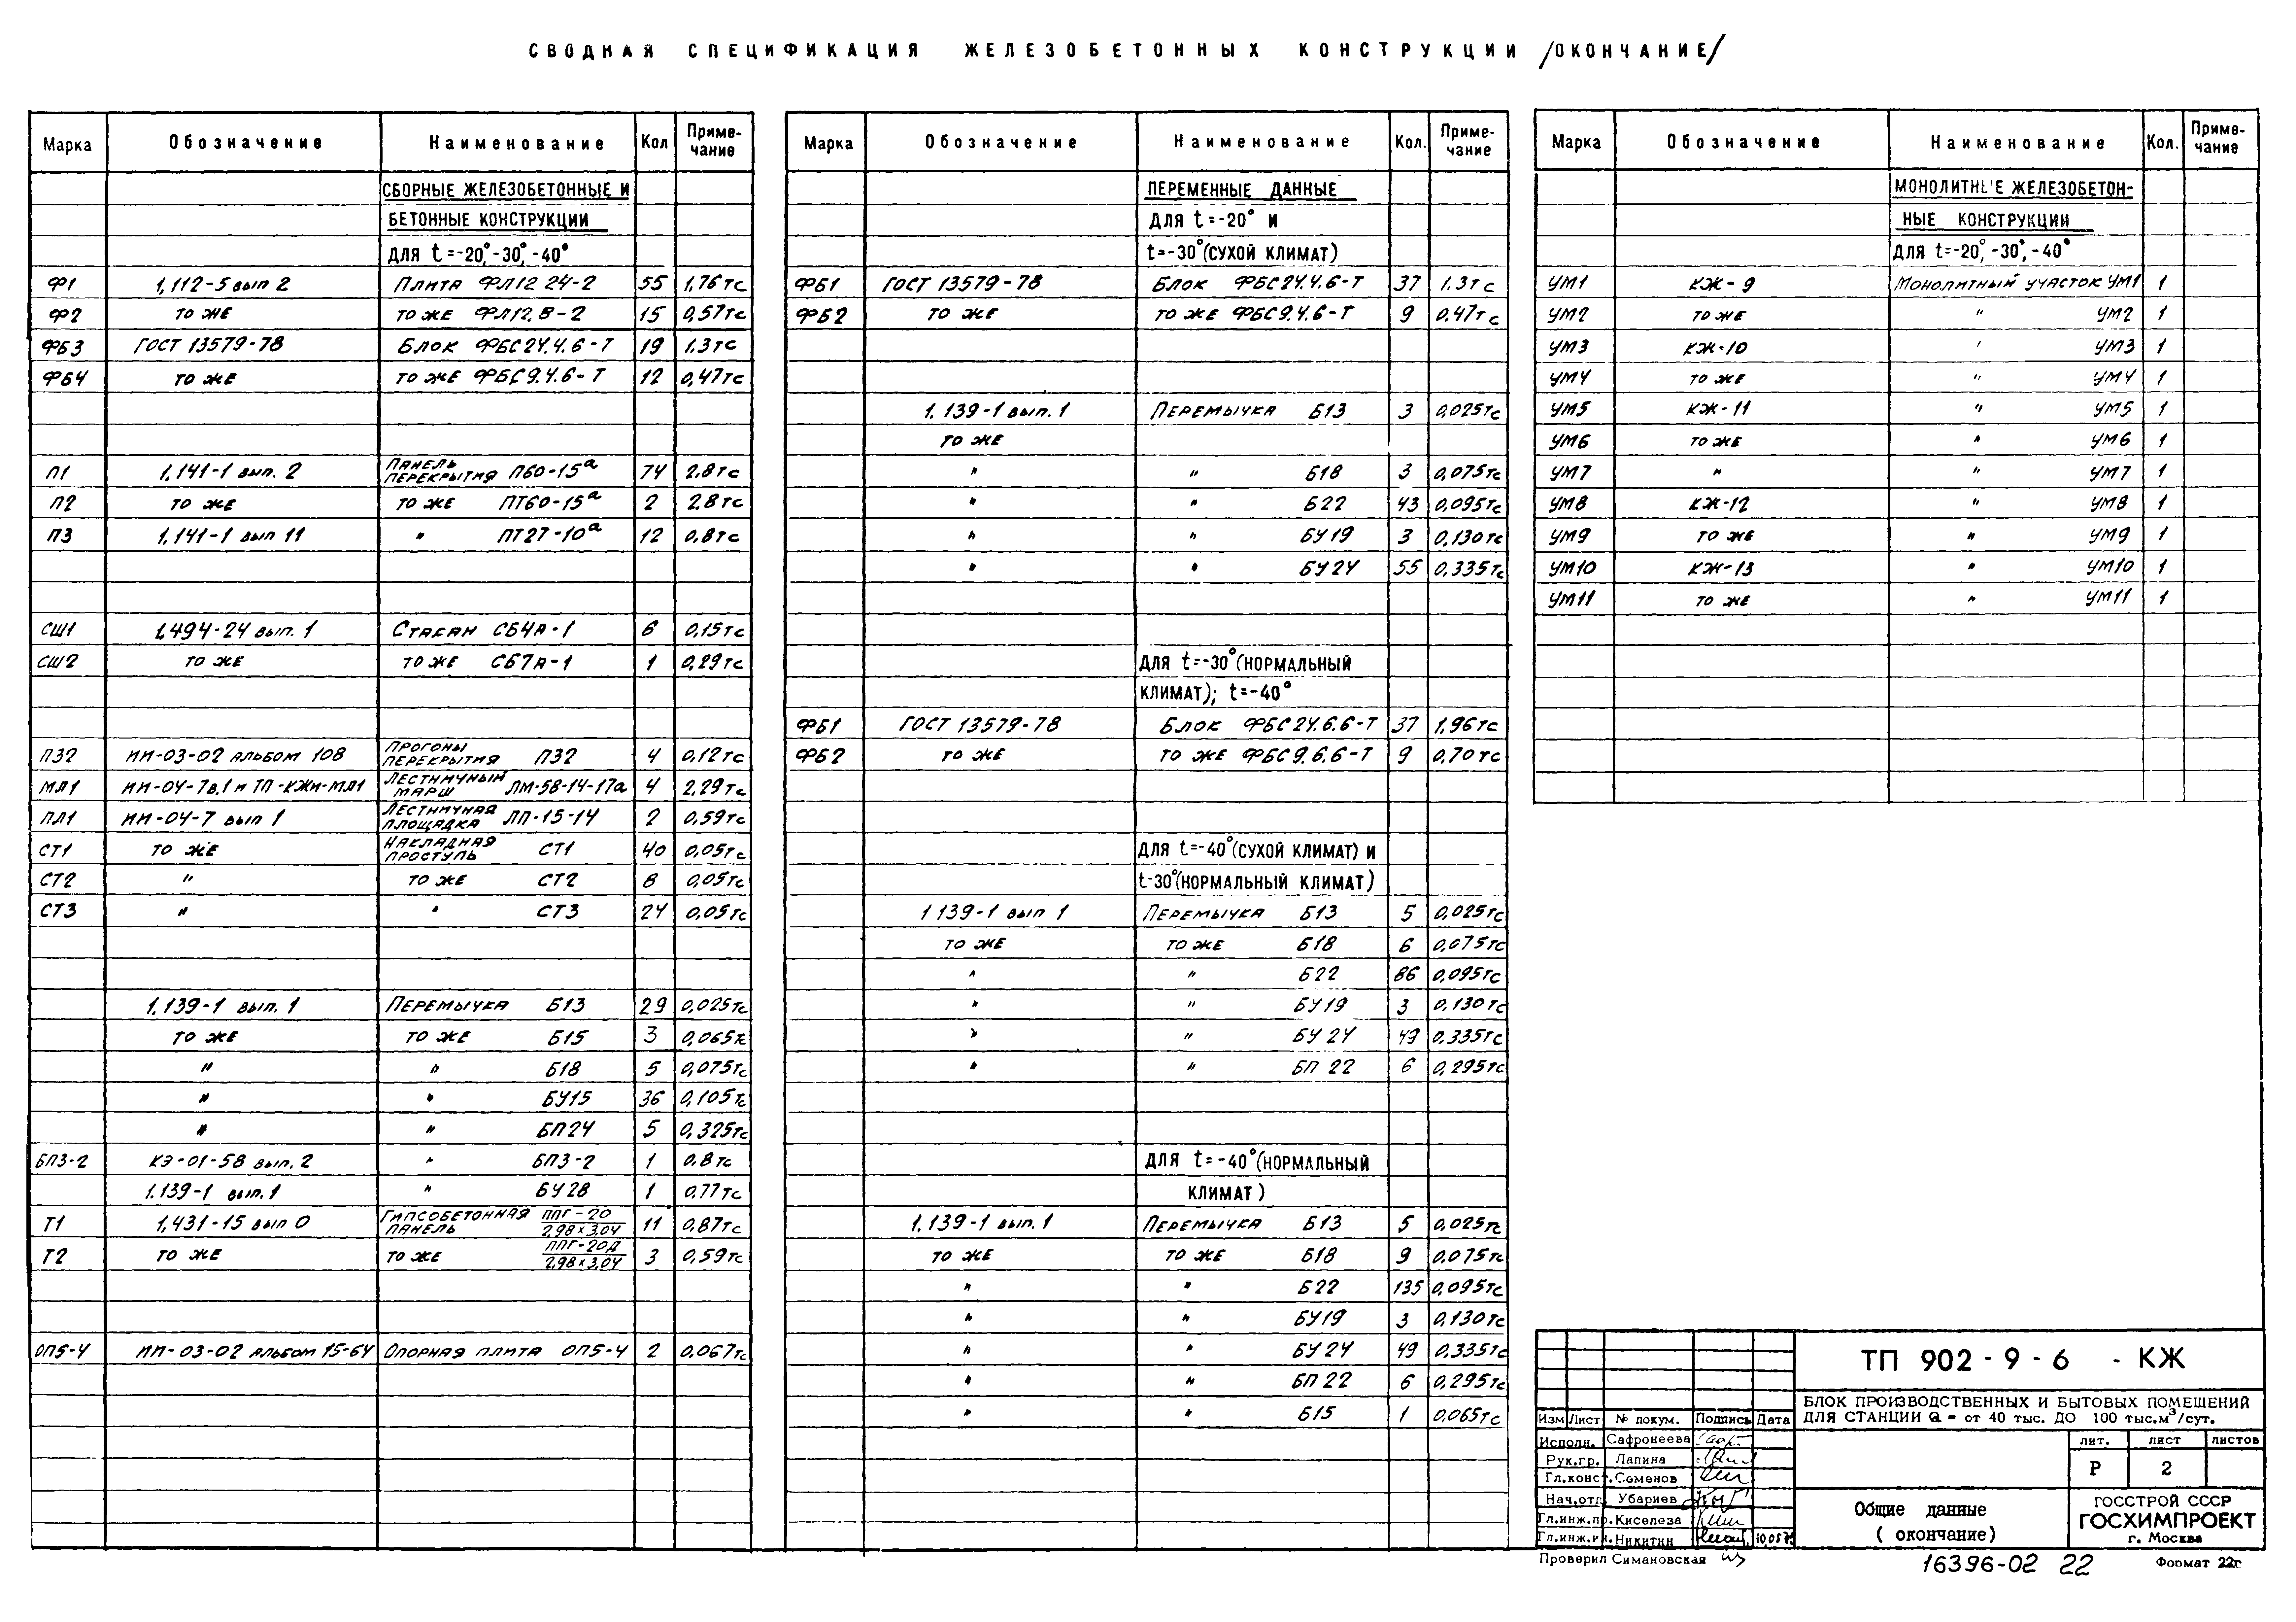 СВОДНАЯ СПЕЦИФИКАЦИЯ ЖЕЛЕЗОБЕТОННЫХ КОНСТРУКЦИИ /ОКОНЧАНИЕ/
Марка Обозначение Наименование Кол Приме-чание
СБОРНЫЕ ЖЕЛЕЗОБЕТОННЫЕ И
БЕТОННЫЕ КОНСТРУКЦИИ
ДЛЯ t=-20°,-30°,-40°
Ф1 1,112-5 вып 2 Плита ФЛ12 24-2 55 1,76тс
Ф2 то же то же ФЛ12.8-2 15 0,57тс
ФБ3 ГОСТ 13579-78 Блок ФБС24.4.6-Т 19 1.3тс
ФБ4 то же то же ФБС9.4.6-Т 12 0,47тс
П1 1,141-1 вып. 2 Панель перекрытия П60-15а 74 2.8тс
П2 то же то же ПТ60-15а 2 2.8тс
П3 1,141-1 вып 11 " ПТ27-10а 12 0,8тс
СШ1 1,494-24 вып. 1 Стакан СБ4А-1 6 0,15тс
СШ2 то же то же СБ7А-1 1 0,29тс
П32 ИИ-03-02 альбом 108 Прогоны перекрытия П32 4 0,12тс
МЛ1 ИИ-04-7в,1 и ТП-КЖИ-МЛ1 Лестничный марш ЛМ-58-14-17а 4 2,29тс
ПЛ1 ИИ-04-7 вып 1 Лестничная площадка ЛП-15-14 2 0,59тс
СТ1 то же Накладная проступь СТ1 40 0,05тс
СТ2 " то же СТ2 8 0,05тс
СТ3 " " СТ3 24 0,05тс
1,139-1 вып. 1 Перемычка Б13 29 0,025тс
то же то же Б15 3 0,065тс
" " Б18 5 0,075тс
" " БУ15 36 0,105тс
" " БП24 5 0,325тс
БП3-2 КЭ-01-58 вып. 2 " БП3-2 1 0.8тс
1.139-1 вып. 1 " БУ28 1 0.77тс
Т1 1,431-15 вып 0 Гипсобетонная панель ППГ-20 2,98х3,04 11 0,87тс
Т2 то же то же ППГ-20Д 2,98х3,04 3 0,59тс
ОП5-4 ИИ-03-02 альбом 15-64 Опорная плита ОП5-4 2 0,067тс
Марка Обозначение Наименование Кол. Приме-чание
ПЕРЕМЕННЫЕ ДАННЫЕ
ДЛЯ t=-20° И
t=-30°(СУХОЙ КЛИМАТ)
ФБ1 ГОСТ 13579-78 Блок ФБС24.4.6-Т 37 1.3тс
ФБ2 то же то же ФБС9.4.6-Т 9 0,47тс
1.139-1 вып. 1 Перемычка Б13 3 0,025тс
то же
" " Б18 3 0,075тс
" " Б22 43 0,095тс
" " БУ19 3 0,130тс
" " БУ24 55 0,335тс
ДЛЯ t=-30°(НОРМАЛЬНЫЙ
КЛИМАТ); t=-40°
ФБ1 ГОСТ 13579-78 Блок ФБС24.6.6-Т 37 1,96тс
ФБ2 то же то же ФБС9.6.6-Т 9 0,70тс
ДЛЯ t=-40°(СУХОЙ КЛИМАТ) И
t-30°(НОРМАЛЬНЫЙ КЛИМАТ)
1 139-1 вып 1 Перемычка Б13 5 0,025тс
то же то же Б18 6 0,075тс
" " Б22 86 0,095тс
" " БУ19 3 0,130тс
" " БУ24 49 0.335тс
" " БП 22 6 0,295тс
ДЛЯ t=-40°(НОРМАЛЬНЫЙ
КЛИМАТ)
1.139-1 вып. 1 Перемычка Б13 5 0,025тс
то же то же Б18 9 0,075тс
" " Б22 135 0,095тс
" " БУ19 3 0,130тс
" " БУ24 49 0,335тс
" " БП 22 6 0,295тс
" " Б15 1 0,065тс
Марка Обозначение Наименование Кол. Приме-чание
МОНОЛИТНЫЕ ЖЕЛЕЗОБЕТОН-
НЫЕ КОНСТРУКЦИИ
ДЛЯ t=-20°,-30°,-40°
УМ1 КЖ-9 Монолитный участок УМ1 1
УМ2 то же " УМ2 1
УМ3 КЖ-10 " УМ3 1
УМ4 то же " УМ4 1
УМ5 КЖ-11 " УМ5 1
УМ6 то же " УМ6 1
УМ7 " " УМ7 1
УМ8 КЖ-12 " УМ8 1
УМ9 то же " УМ9 1
УМ10 КЖ-13 " УМ10 1
УМ11 то же " УМ11 1
ТП 902-9-6 -КЖ
БЛОК ПРОИЗВОДСТВЕННЫХ И БЫТОВЫХ ПОМЕЩЕНИЙ
ДЛЯ СТАНЦИИ Q = от 40 тыс. ДО 100 тыс.м³/сут.
Изм Лист № докум. Подпись Дата
Исполн. Сафронеева
Рук.гр. Лапина
Гл.конст. Семенов
Нач.отд Убариев
Гл.инж.пр. Киселева
Гл.инж.ин. Никитин
Проверил Симановская
лит. лист листов
Р 2
Общие данные
(окончание)
ГОССТРОЙ СССР
ГОСХИМПРОЕКТ
г. Москва
16396-02 22
Формат 22г